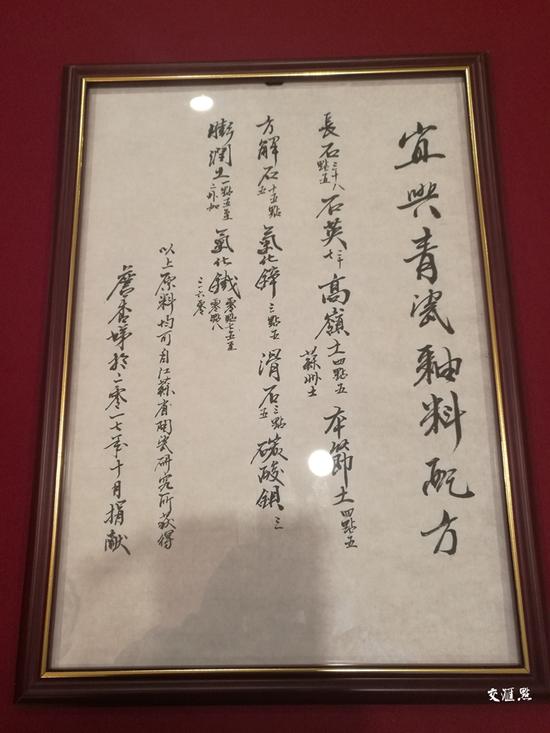 宜興青瓷釉料配方
長石三十八點五石英高嶺土四點五蘇州土本節土四點五
方解石十五點五氧化鋅三點五滑石三點五碳酸鋇三
膨潤土一點五至二外加氧化鐵零點七五至零點八
以上原料均可自江蘇省陶瓷研究所獲得
於二零一七年十月捐献
交汇点